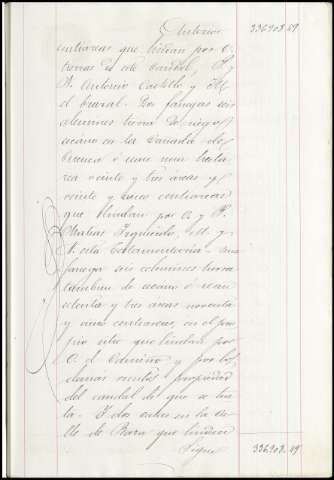 Anterior 336908.49
centiareas que lindan por O.
tierras de este caudal, P. y
N. Antonio Castillo y M.
el brazal. Dos fanegas seis
celemines tierra de riego
secano en la Cañada de
ó sean una hecta
rea veinte y tres áreas y
veinte y cinco centiareas
que lindan por O. y P.
Matias Izquierdo, M. y
N. esta Testamentaria. Una
fanega seis celemines tierra
tambien de secano ó sean
y tres áreas noventa
y cinco centiareas, en el pro
pio sitio que lindan por
O. el y por los
demás vientos propiedad
del caudal de que se tra
ta. Y dos en la ca
lle de que lindan
Sigue 336908.49